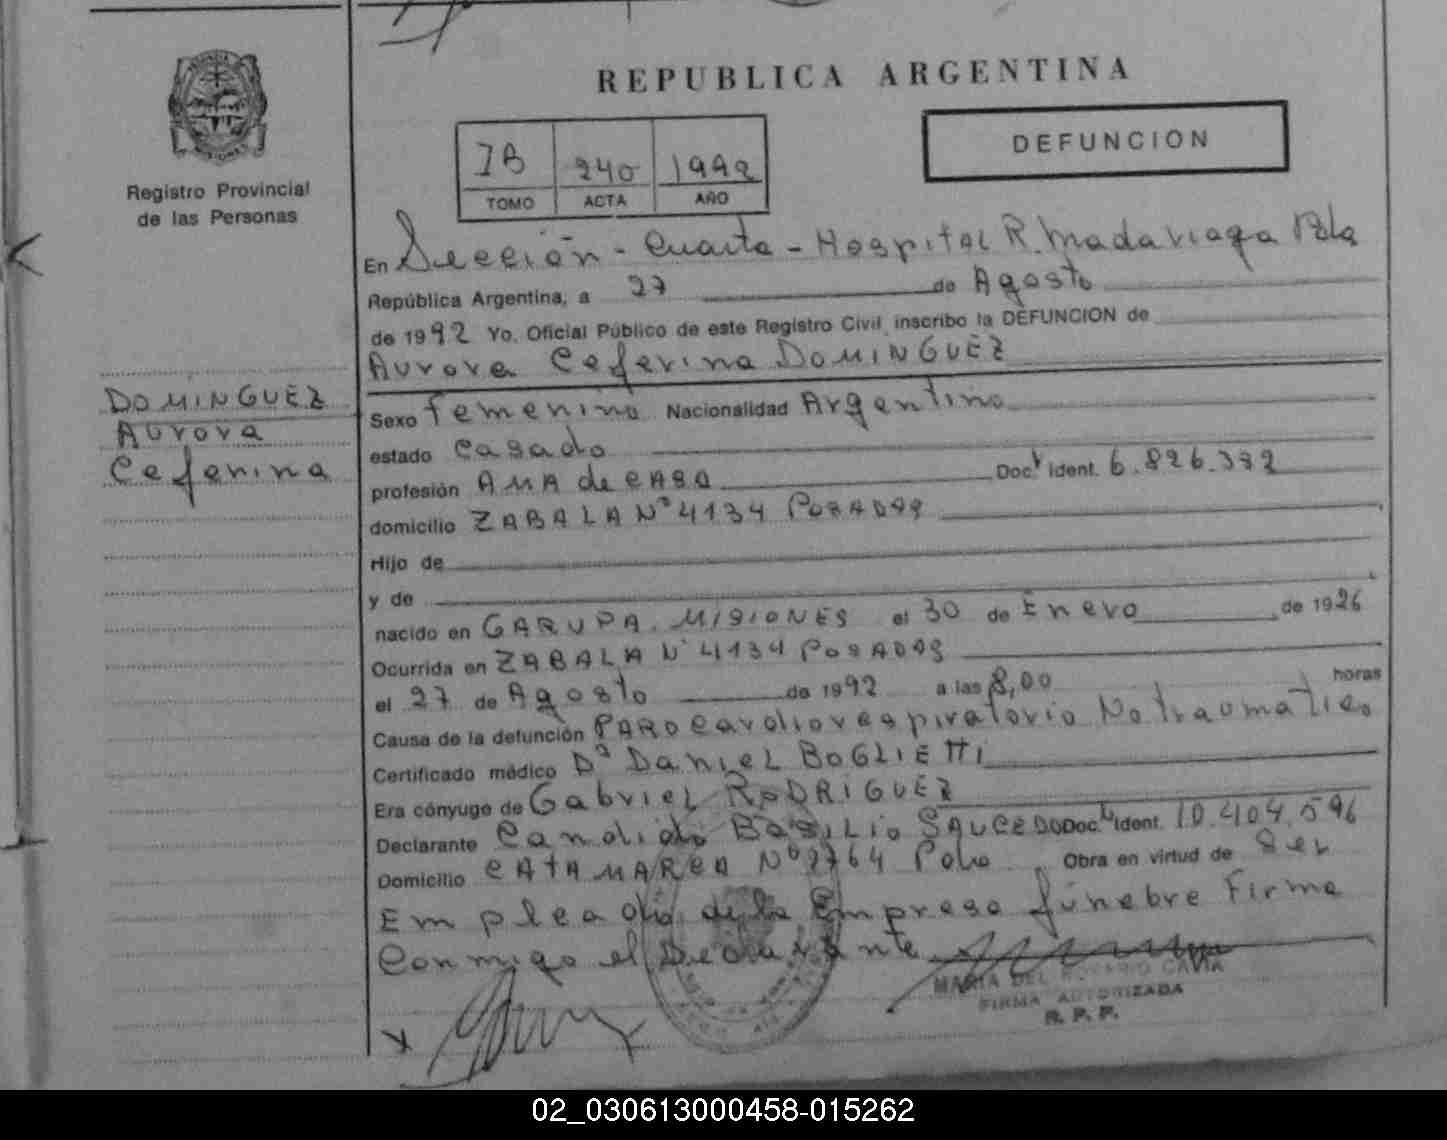 REPUBLICA ARGENTINA
DEFUNCION
IB 240 1992
TOMO ACTA AÑO
Registro Provincial
de las Personas
DOMINGUEZ
Aurora
Ceferina
En Sección - Cuarta - Hospital R. Madariaga Pdas
República Argentina, a 27 de Agosto
de 1992 Yo, Oficial Público de este Registro Civil, inscribo la DEFUNCION de
Aurora Ceferina DOMINGUEZ
Sexo Femenino Nacionalidad Argentino
estado Casado
profesión AMA de CASA Doc. Ident. 6.826.382
domicilio ZABALA N° 4134 POSADAS
Hijo de
y de
nacido en GARUPA. MISIONES el 30 de Enero de 1926
Ocurrida en ZABALA N° 4134 POSADAS
el 27 de Agosto de 1992 a las 8,00 horas
Causa de la defunción PARO Cardiorespiratorio No traumatico
Certificado médico Dr Daniel BOGLIETTI
Era cónyuge de Gabriel RODRIGUEZ
Declarante Candido BASILIO SAUCEDO Doc. Ident. 10.404.596
Domicilio CATAMARCA N° 2764 Pdas Obra en virtud de Ser
Empleado de la Empresa fúnebre Firma
Conmigo el Declarante
MARIA DEL ROSARIO CAVIA
FIRMA AUTORIZADA
R. P. P.
02_030613000458-015262